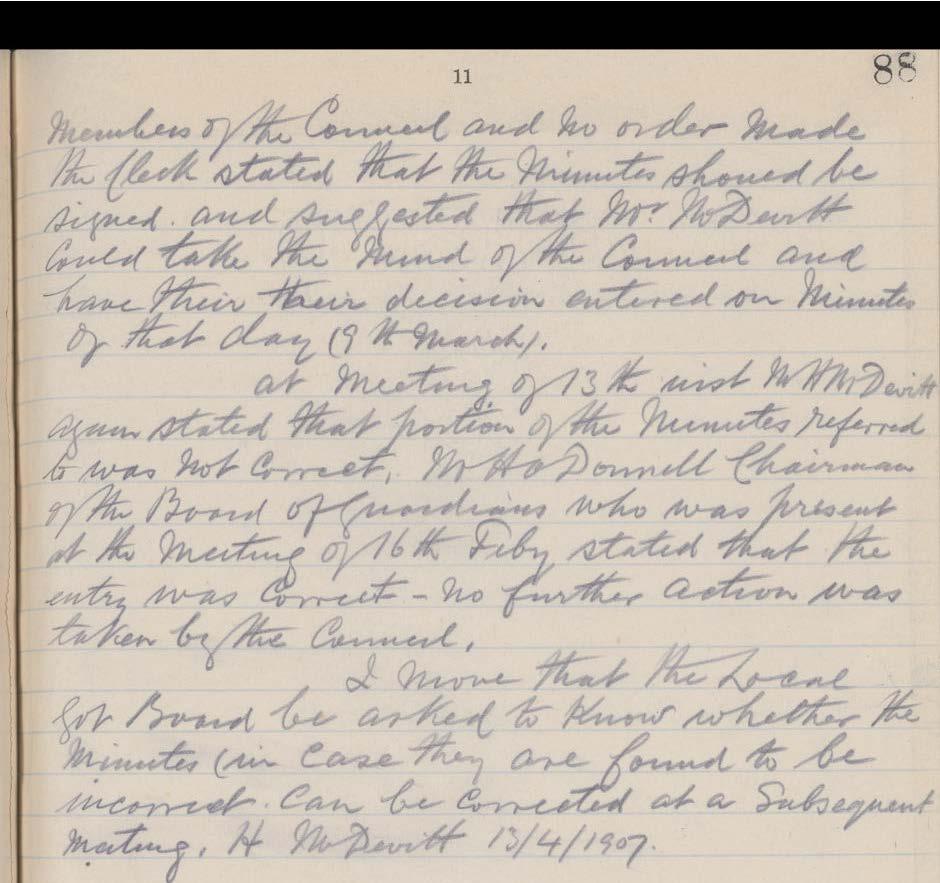 11
88
Members of the Council and no order made
the Clerk stated that the Minutes should be
signed. and suggested that Mr. McDevitt
Could take the mind of the Council and
have their their decision entered on Minutes
of that day (9th March).
at Meeting of 13th inst Mr H McDevitt
again stated that portion of the Minutes referred
to was not Correct. Mr H O Donnell Chairman
of the Board of Guardians who was present
at the Meeting of 16th Feby stated that the
entry was Correct - no further action was
taken by the Council.
I move that the Local
Govt Board be asked to Know whether the
Minutes (in Case they are found to be
incorrect. Can be Corrected at a Subsequent
Meeting. H McDevitt 13/4/1907.